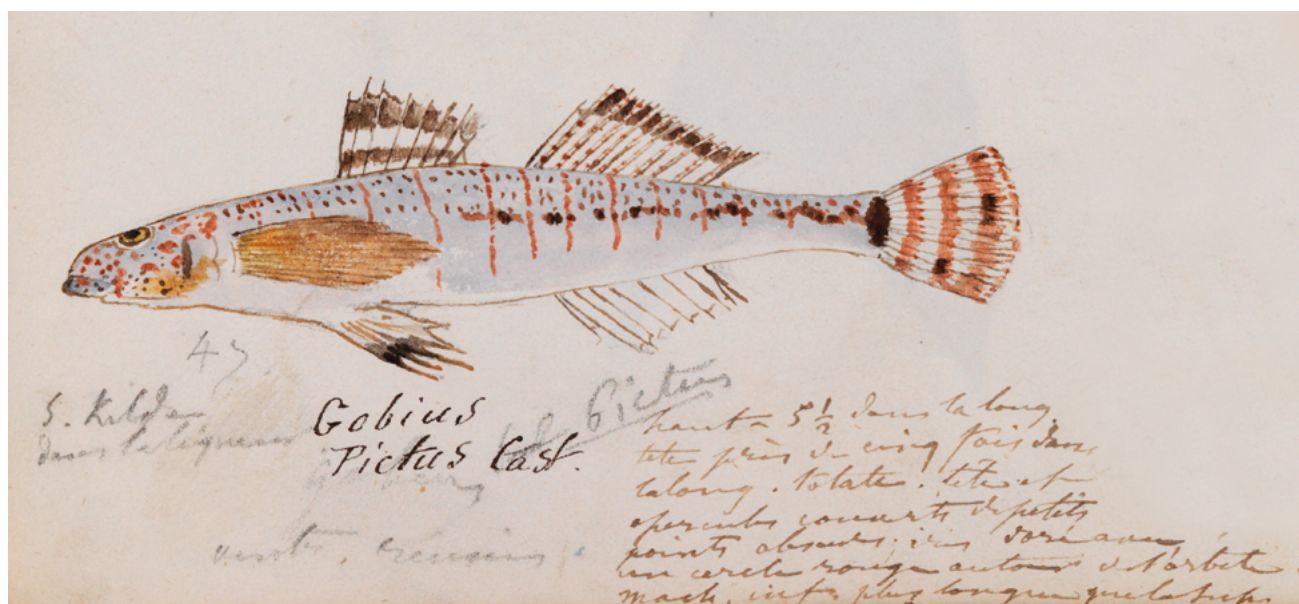 47
S. Kilda
dans la liqueur
Gobius
Pictus Cast.
Pictus
haut = 5½ dans la long
tete près de cinq fois dans
la long. totale. tête et
opercules couverts de petits
points obscurs; iris doré avec
un cercle rouge autour de l'orbite.
mach. inf. plus longue que la sup.